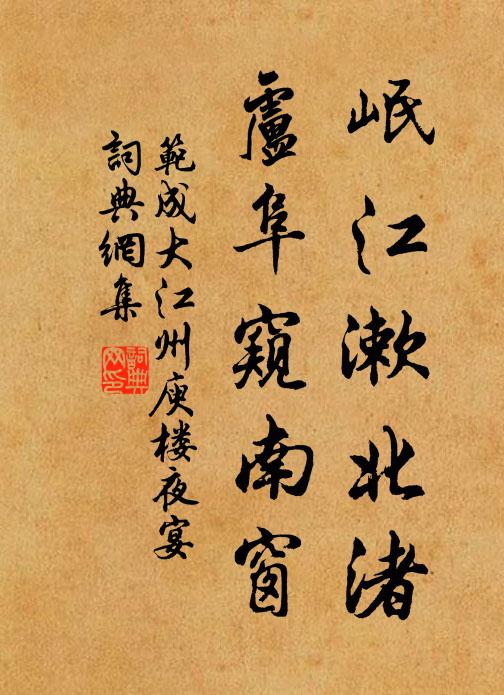 岷江漱北渚
廬阜窺南窗
範成大江州庾楼夜宴
詞典網集
詞典网印